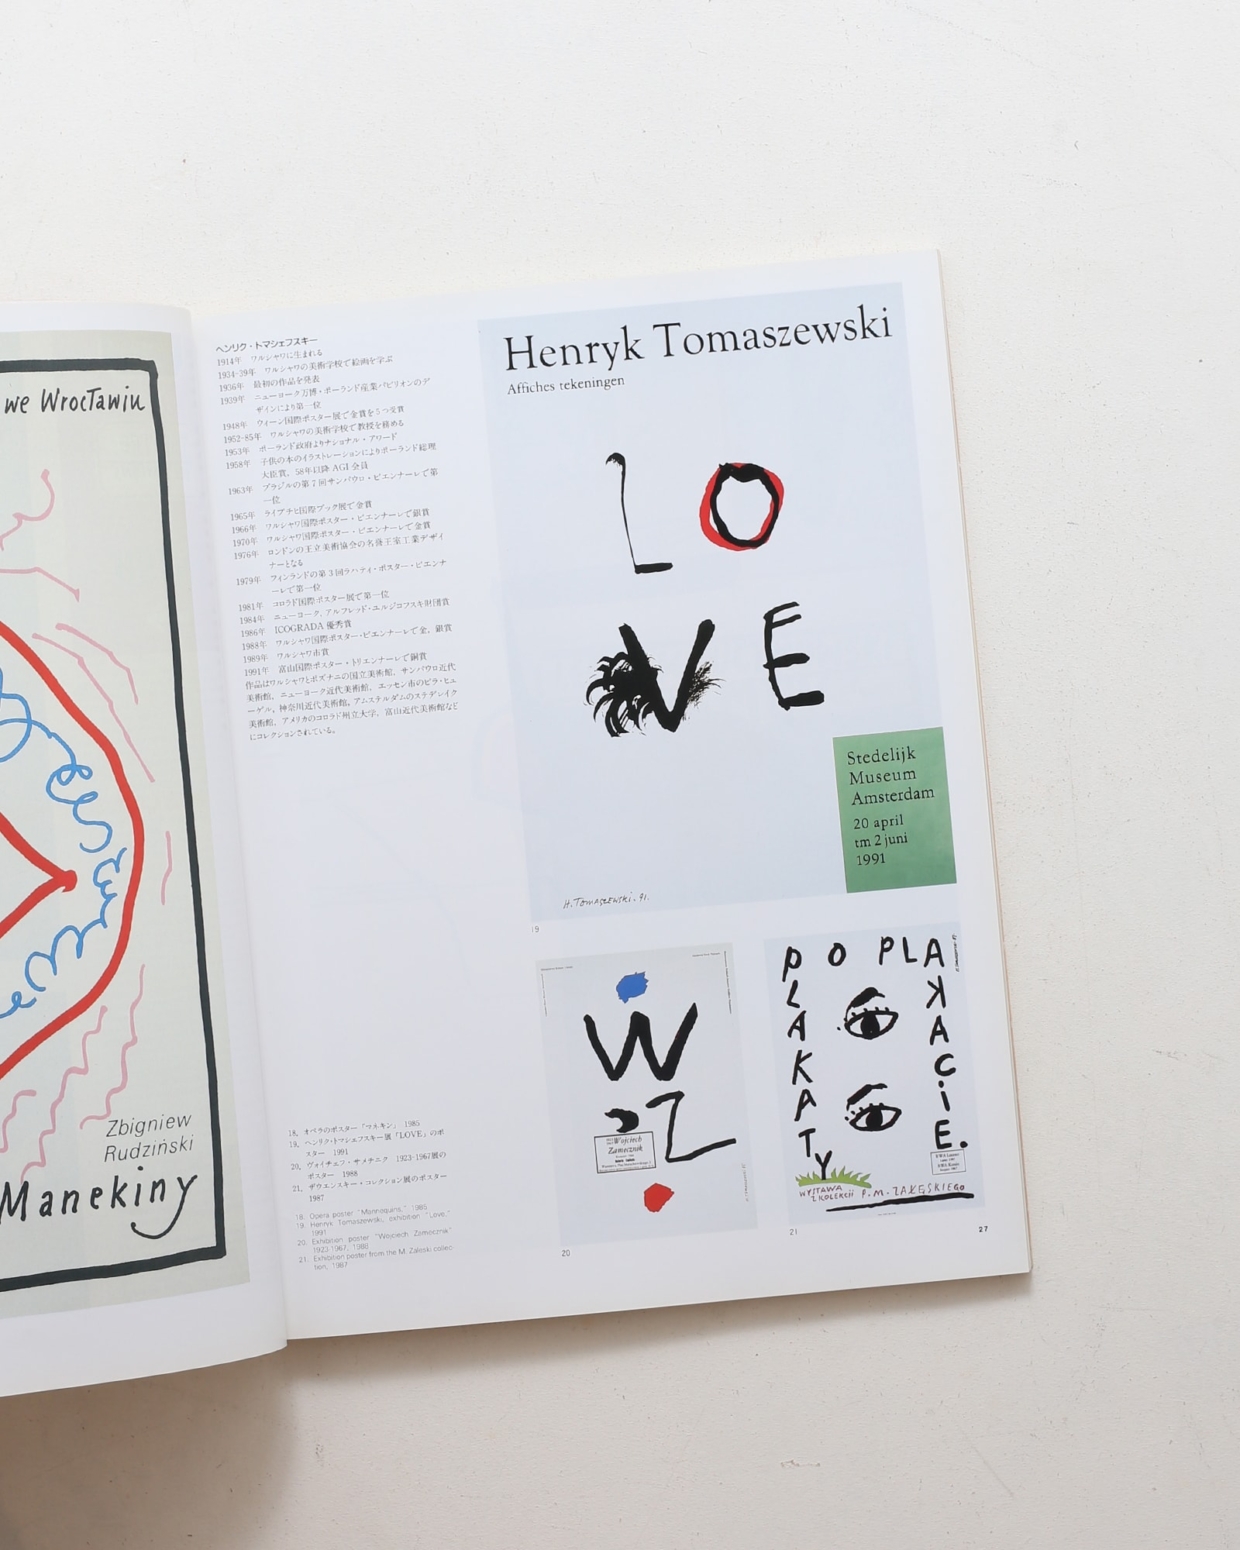 we Wrocławiu
Zbigniew
Rudziński
Manekiny
ヘンリク・トマシェフスキー
1914年 ワルシャワに生まれる
1934-39年 ワルシャワの美術学校で絵画を学ぶ
1936年 最初の作品を発表
1939年 ニューヨーク万博・ポーランド産業パビリオンのデ
ザインにより第一位
1948年 ウィーン国際ポスター展で金賞を5つ受賞
1952-85年 ワルシャワの美術学校で教授を務める
1953年 ポーランド政府よりナショナル・アワード
1958年 子供の本のイラストレーションによりポーランド総理
大臣賞、58年以降AGI会員
1963年 ブラジルの第7回サンパウロ・ビエンナーレで第
一位
1965年 ライプチヒ国際ブック展で金賞
1966年 ワルシャワ国際ポスター・ビエンナーレで銀賞
1970年 ワルシャワ国際ポスター・ビエンナーレで金賞
1976年 ロンドンの王立美術協会の名誉王室工業デザイ
ナーとなる
1979年 フィンランドの第3回ラハティ・ポスター・ビエンナ
ーレで第一位
1981年 コロラド国際ポスター展で第一位
1984年 ニューヨーク、アルフレッド・ユルジコフスキ財団賞
1986年 ICOGRADA優秀賞
1988年 ワルシャワ国際ポスター・ビエンナーレで金、銀賞
1989年 ワルシャワ市賞
1991年 富山国際ポスター・トリエンナーレで銅賞
作品はワルシャワとポズナニの国立美術館、サンパウロ近代
美術館、ニューヨーク近代美術館、エッセン市のビラ・ヒュ
ーゲル、神奈川近代美術館、アムステルダムのステデレイク
美術館、アメリカのコロラド州立大学、富山近代美術館など
にコレクションされている。
18. オペラのポスター「マネキン」 1985
19. ヘンリク・トマシェフスキー展「LOVE」のポ
スター 1991
20. ヴォイチェフ・ザメチニク 1923-1967展の
ポスター 1988
21. ザウエンスキー・コレクション展のポスター
1987
18. Opera poster "Mannequins," 1985
19. Henryk Tomaszewski, exhibition "Love,"
1991
20. Exhibition poster "Wojciech Zamecznik"
1923-1967, 1988
21. Exhibition poster from the M. Zaleski collec-
tion, 1987
Henryk Tomaszewski
Affiches tekeningen
LO
VE
Stedelijk
Museum
Amsterdam
20 april
tm 2 juni
1991
H. Tomaszewski. 91.
19
W
Z
Wojciech
Zamecznik
20
PO PLAKACIE.
PLAKATY
WYSTAWA
Z KOLEKCJI P. M. ZAŁĘSKIEGO
21
27